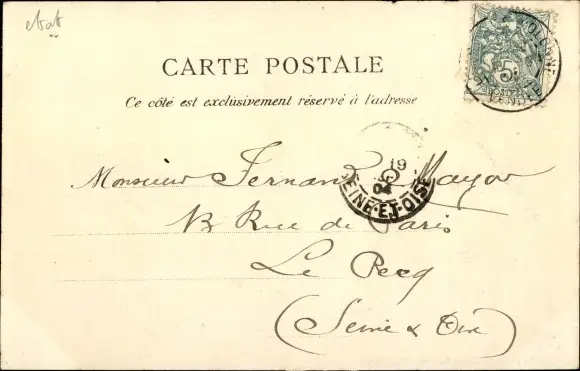 etat
CARTE POSTALE
Ce côté est exclusivement réservé à l'adresse
Monsieur Fernand Mayor
13 Rue de Paris
Le Pecq
(Seine & Oise)
19
04
SEINE-ET-OISE
5